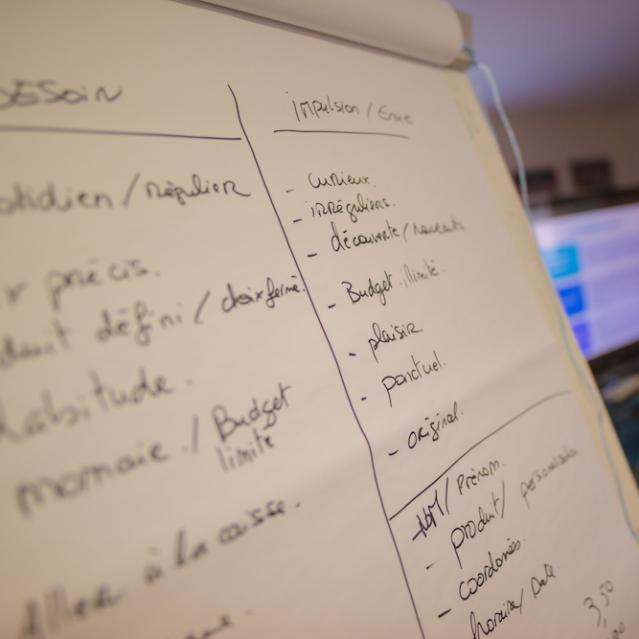 BESOIN
quotidien / régulier
précis.
produit défini / choix fermé.
habitude.
monnaie / Budget
limité
Aller à la caisse.
Impulsion / Envie
- curieux.
- irréguliers.
- découverte / nouveauté
- Budget illimité.
- plaisir
- ponctuel.
- original.
- NOM / Prénom.
- produit / personnalisé
- coordonnées.
- horaire / Date.
3,50